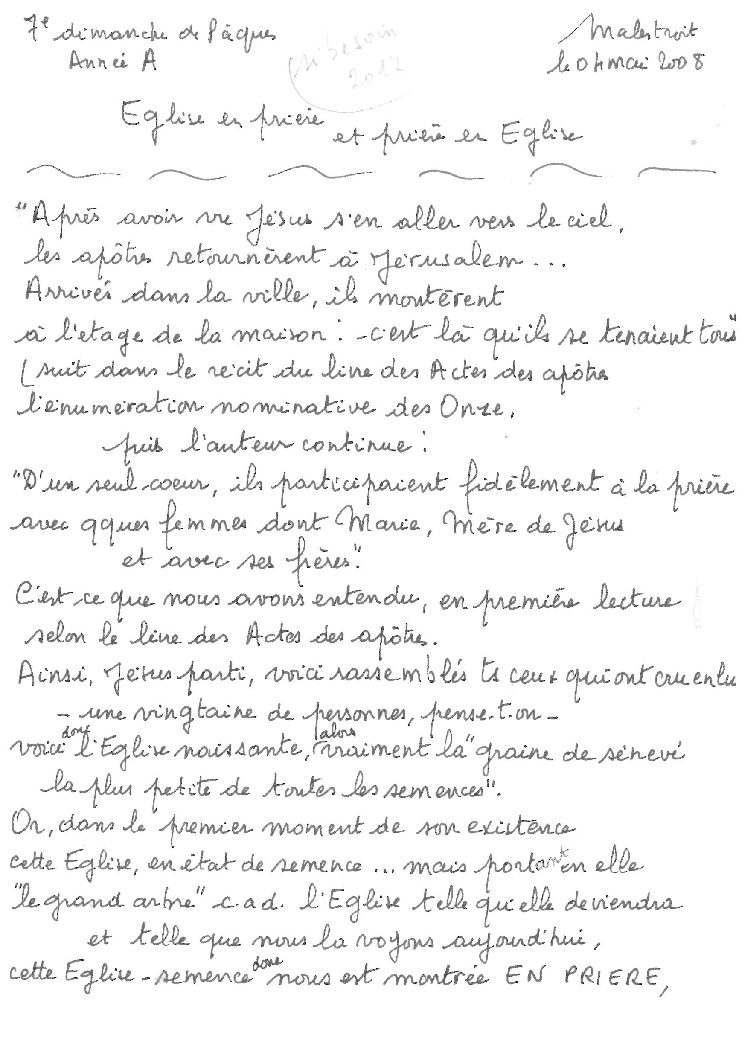 7e dimanche de Pâques
Année A
Malestroit
le 04 mai 2008
si besoin
2012
Eglise en prière
et prière en Eglise
"Après avoir vu Jésus s'en aller vers le ciel,
les apôtres retournèrent à Jérusalem...
Arrivés dans la ville, ils montèrent
à l'étage de la maison : - c'est là qu'ils se tenaient tous"
(suit dans le récit du livre des Actes des apôtres
l'énumération nominative des Onze,
puis l'auteur continue :
"D'un seul coeur, ils participaient fidèlement à la prière
avec qques femmes dont Marie, Mère de Jésus
et avec ses frères".
C'est ce que nous avons entendu, en première lecture
selon le livre des Actes des apôtres.
Ainsi, Jésus parti, voici rassemblés ts ceux qui ont cru en lui
- une vingtaine de personnes, pense-t-on -
voici donc l'Eglise naissante, alors vraiment la "graine de sénevé
la plus petite de toutes les semences".
Or, dans le premier moment de son existence
cette Eglise, en état de semence ... mais portant en elle
"le grand arbre" c.a.d. l'Eglise telle qu'elle deviendra
et telle que nous la voyons aujourd'hui,
cette Eglise-semence donc nous est montrée EN PRIERE,